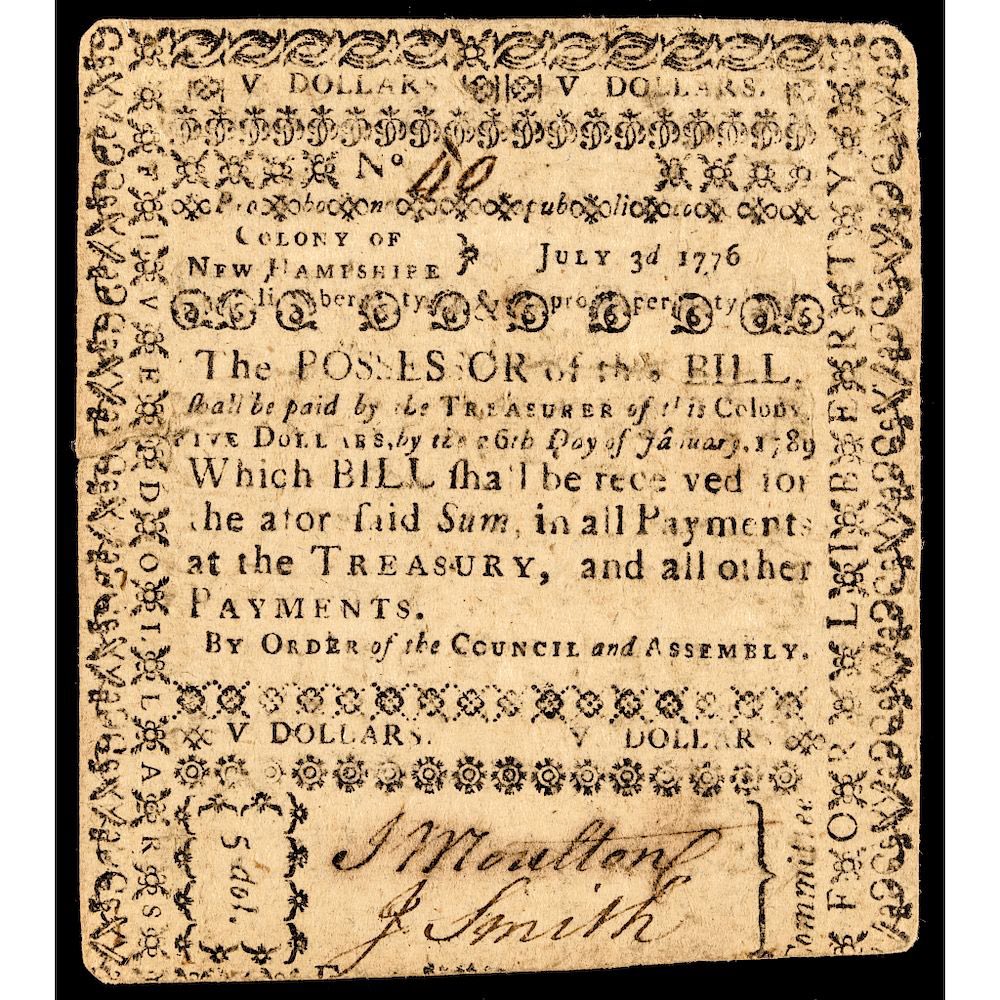 V DOLLARS V DOLLARS.
No 40
Pro bo no pub li co
COLONY OF
NEW HAMPSHIRE JULY 3d 1776
li ber ty & pro per ty
The POSSESSOR of this BILL,
ſhall be paid by the TREASURER of this Colony,
FIVE DOLLARS, by the 26th Day of January, 1789
Which BILL ſhall be received for
the afor-ſaid Sum, in all Payments
at the TREASURY, and all other
PAYMENTS.
BY ORDER of the COUNCIL and ASSEMBLY.
V DOLLARS. V DOLLARS
5 dol.
J Moulton
J Smith
Committee
FIVE DOLLARS
FOR LIBERTY